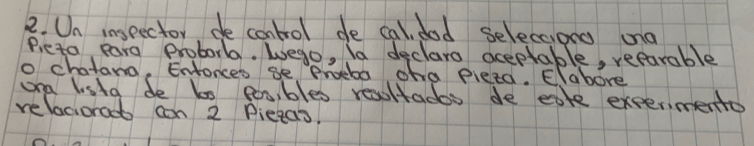 2. Un inspector de control de calidad selecciona una
Pieza para Probarla. Luego, la declara aceptable, reparable
o chatarra. Entonces se Prueba otra Pieza. Elabore
una lista de los posibles resultados de este experimento
relacionado con 2 Piezas.